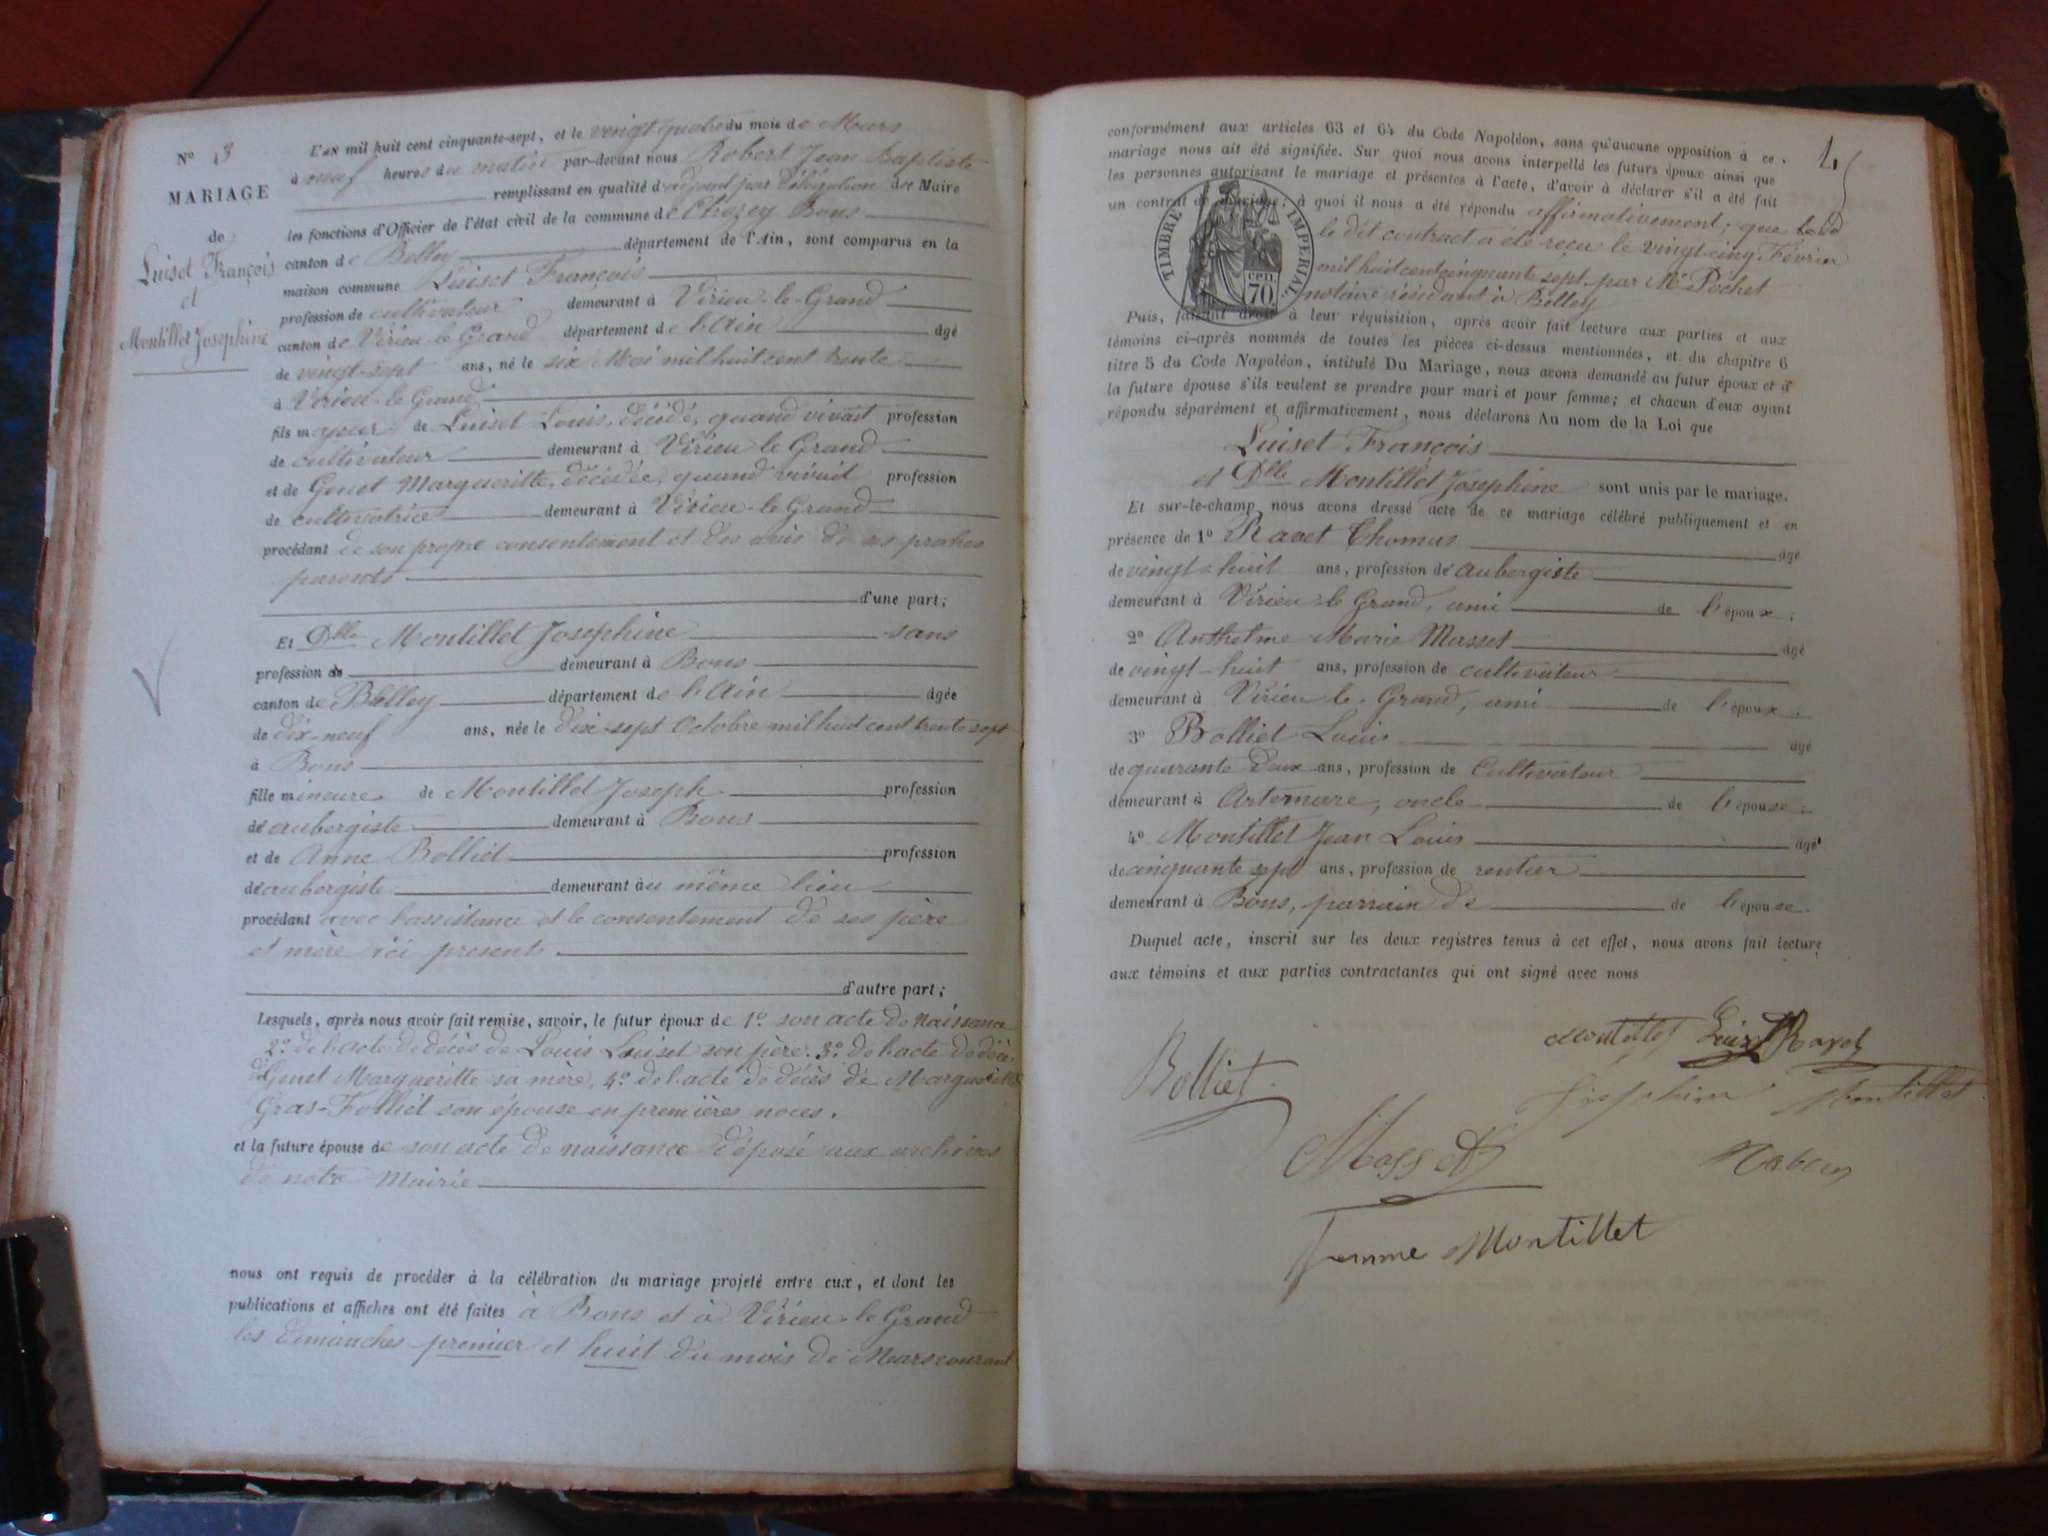 N° 3
MARIAGE
de
Luiset François
et
Montillet Josephine
L'an mil huit cent cinquante-sept, et le vingt quatre du mois de Mars
à neuf heures du matin par-devant nous Robert Jean Baptiste
remplissant en qualité d'adjoint par délégation du Maire
les fonctions d'Officier de l'état civil de la commune de Chazey Bons
canton de Belley département de l'Ain, sont comparus en la
maison commune Luiset François
profession de cultivateur demeurant à Virieu-le-Grand
canton de Virieu-le-Grand département de l'Ain âgé
de vingt-sept ans, né le six Mai mil huit cent trente
à Virieu-le-Grand
fils majeur de Luiset Louis, décédé, quand vivait profession
de cultivateur demeurant à Virieu le Grand
et de Genet Margueritte, décédée, quand vivait profession
de cultivatrice demeurant à Virieu-le-Grand
procédant de son propre consentement et des avis de ses proches
parents
d'une part;
Et Dlle Montillet Josephine sans
profession de demeurant à Bons
canton de Belley département de l'Ain âgée
de dix-neuf ans, née le dix-sept Octobre mil huit cent trente sept
à Bons
fille mineure de Montillet Joseph profession
d'aubergiste demeurant à Bons
et de Anne Bolliet profession
d'aubergiste demeurant au même lieu
procédant avec l'assistance et le consentement de ses père
et mère ici présents
d'autre part;
Lesquels, après nous avoir fait remise, savoir, le futur époux de 1° son acte de Naissance
2° de l'acte de décès de Louis Luiset son père. 3° de l'acte de décès
de Genet Margueritte sa mère, 4° de l'acte de décès de Margueritte
Gras-Folliet son épouse en premières noces.
et la future épouse de son acte de naissance déposé aux archives
de notre Mairie
nous ont requis de procéder à la célébration du mariage projeté entre eux, et dont les
publications et affiches ont été faites à Bons et à Virieu-le-Grand
les dimanches premier et huit du mois de Mars courant
conformément aux articles 63 et 64 du Code Napoléon, sans qu'aucune opposition à ce
mariage nous ait été signifiée. Sur quoi nous avons interpellé les futurs époux ainsi que
les personnes autorisant le mariage et présentes à l'acte, d'avoir à déclarer s'il a été fait
un contrat de mariage; à quoi il nous a été répondu affirmativement; que
le dit contract a été reçu le vingt-cinq Février
mil huit cent cinquante sept par Me Pochet
notaire résidant à Belley
TIMBRE IMPERIAL
cen
70
Puis, faisant droit à leur réquisition, après avoir fait lecture aux parties et aux
témoins ci-après nommés de toutes les pièces ci-dessus mentionnées, et du chapitre 6
titre 5 du Code Napoléon, intitulé Du Mariage, nous avons demandé au futur époux et à
la future épouse s'ils veulent se prendre pour mari et pour femme; et chacun d'eux ayant
répondu séparément et affirmativement, nous déclarons Au nom de la Loi que
Luiset François
et Dlle Montillet Josephine sont unis par le mariage.
Et sur-le-champ nous avons dressé acte de ce mariage célébré publiquement et en
présence de 1° Ravet Thomas âgé
de vingt-huit ans, profession d'aubergiste
demeurant à Virieu-le-Grand, ami de l'époux.
2° Anthelme Marie Masset âgé
de vingt-huit ans, profession de cultivateur
demeurant à Virieu-le-Grand, ami de l'époux.
3° Bolliet Louis âgé
de quarante deux ans, profession de Cultivateur
demeurant à Artemare, oncle de l'épouse.
4° Montillet Jean Louis âgé
de cinquante sept ans, profession de rentier
demeurant à Bons, parrain de de l'épouse.
Duquel acte, inscrit sur les deux registres tenus à cet effet, nous avons fait lecture
aux témoins et aux parties contractantes qui ont signé avec nous
Montillet Luiset Ravet
Bolliet
Josephine Montillet
Masset
Robert
Femme Montillet